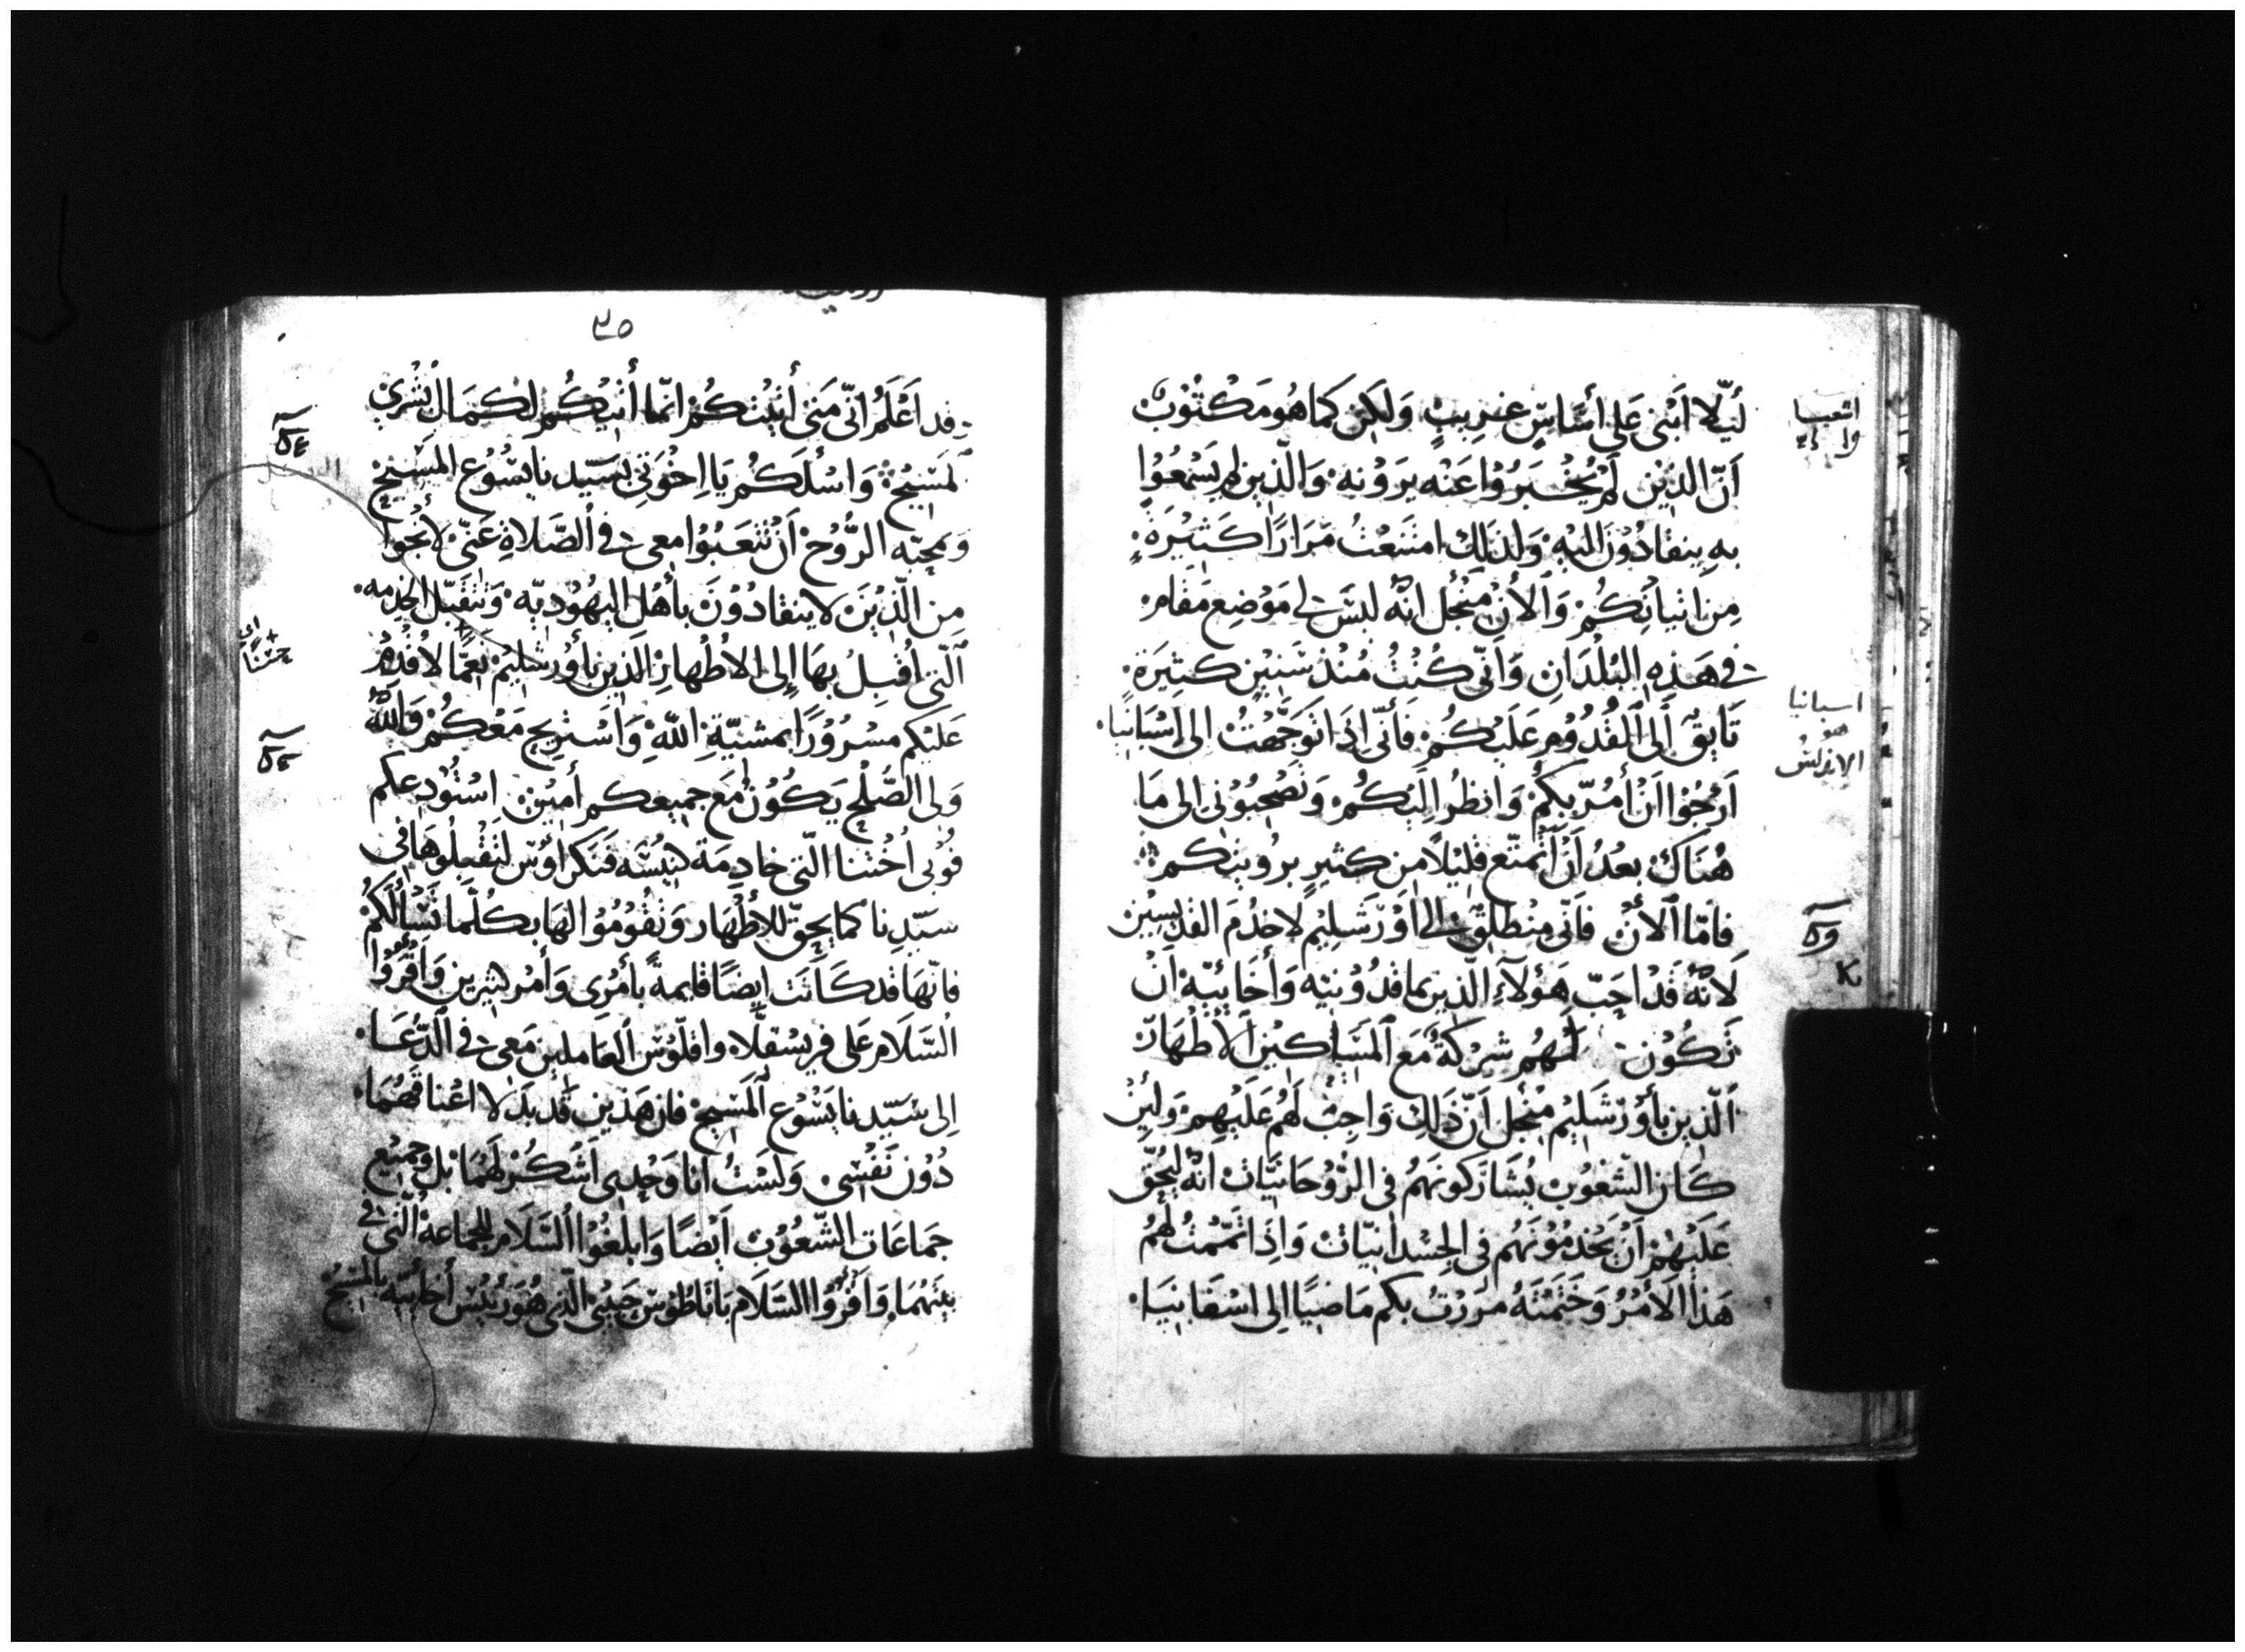 لَيلا ابْنى عَلى أسَاسٍ غرِيبٍ وَلكِن كما هُو مَكْتُوبْ
اَنّ الذِيْن لَمْ يُخْبَرُوْا عَنْه يَرَوْنه وَالّذين لم يَسْمَعُوْا
بهِ ينقادُوْنَ اليْه وَلذَلِكَ امتَنَعْتُ مِرَارًا كَثِيْرَة
مِن اتيانكُمْ وَالأنْ مِنْجُل انّه ليسَ لى مَوْضِع مَقَام
فى هَذِهِ البُلْدَانِ وَانّى كُنْتُ مُنْذ سَنِيْن كَثِيَرة
تَايِقٌ اَلى القُدُوْمِ عَلَيْكُمْ فَأنّى اذَا تَوَجَّهْتُ الى اسْبَانيَا
اَرْجُوْا اَنْ أمُرّ بكُمْ وَانظرُ اِلَيْكُمْ وَتَصْحَبُوْنى الى مَا
هُنَاكَ بعْدُ اَنْ اَتمتّع قليْلاً من كثيرٍ برُويتكم
فامّا اَلأنْ فاَنّى مِنْطلِقٌ الى اوْرَشَلِيْم لاخدُمَ القدِيسِيْن
لاَنّهُ قَدْ احَبّ هَؤلآءِ الّذين بماقدُوْنيَه وَأخَائِيَهْ اَنْ
تَكُوْن لَهُم شِرْكَةٌ مَع المَسَاكِيْن اَلأطْهَارْ
اَلّذِين بأوْرَشَلِيْم مِنْجُل اَنّ ذَلِكَ وَاجِبٌ لَهُم عَلَيْهِمْ وَلَئِنْ
كَان الشّعُوْب يُشَارَكونَهُم فى الرُّوْحَانيّات انّهُ ليَحُقّ
عَلَيْهِمْ اَنْ يَخدمُوْنَهُم فى الجسْدانيّات وَاذَا تَمّمْتُ لَهُمْ
هَذا الأمْرُ وَخَتَمْتَهُ مرَرْتُ بكم مَاضِيًا الى اسْقَانِيَا
اشعيا
اسبانيا
هو
الاندلس
٢٥
قد اَعْلَمُ انّى مَتى أتَيْتكُمْ انّما أتيْكُم لكَمَال بُشْرى
المَسِيْحْ وَاسْئلَكُم يَا اِخْوَتى بسَيّدنا يسُوْع المَسيْح
وَبمَحبّه الرُّوْحْ اَنْ تَتْعَبُوْا معى فى الصّلاةِ عَنّى لأنْجُوا
مِن الّذِيْنَ لا ينقادُوْنَ بأهْل اليهُوديّه وَتُتقَبّل الخِدمه
اَلّتى اُقبِلُ بهَا إلى الأطْهارِ الَذين بأوْرشليْمْ نِعِمّا لأقْدِمُ
عَليْكم مسْرُوْرًا بمشيّةِ اللهِ وَاَسْتريح مَعْكُمْ وَاللهُ
وَلى الصُّلْح يَكُوْنْ مَع جميعكم أميْن اسْتُوْدعكم
فوُبى اُخْتنا الّتى خادِمَة كنِيْسَه قنكراؤس لتَقْبلُوهَا فى
سيّدِنا كما يحِقّ للأطْهَار وَتقُوْمُوْا لهَا بكلّما تَسْألَكُمْ
فانّهَا قد كَانَت ايضًا قايمةً بأمْرى وَأمْر كثيرين وَاَقْرُوْا
السّلاَم عَلى فريسْقلّاه واقلّوس اَلعَاملين مَعى فى الدّعَا
اِلى سَيّدنا يَسُوْع اَلمَسيح فان هَذين قَد بذَلا اعْناقَهُمَا
دُوْن نَفْسى وَلَسْتُ انا وَحْدِى اَشْكُرْ لَهُمَا بل وجَمِيْع
جَماعَات الشّعُوْبْ اَيْضًا وَابلغُوْا السّلاَم للجماعة الّتى فى
بيتهُمَا وَاَقْرُوْا السّلاَم بَانَاطُوْس حَبِيْبى الّذى هُوَ رَئِيْس أخَائيَه بالمَسيْح